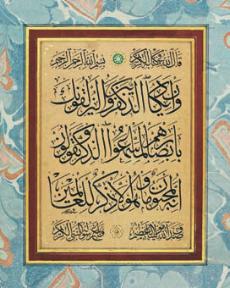 قال الله الكريم بسم الله الرحمن الرحيم
وإن يكاد الذين كفروا ليزلقونك
بأبصارهم لما سمعوا الذكر ويقولون
إنه لمجنون وما هو إلا ذكر للعالمين
صدق الله رسوله الكريم